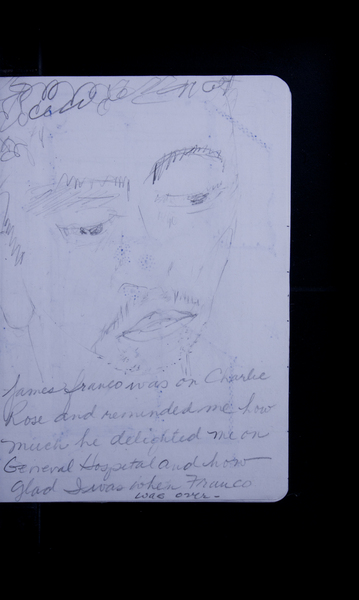 James Franco was on Charlie
Rose and reminded me how
much he delighted me on
General Hospital and how
glad I was when Franco
was over.